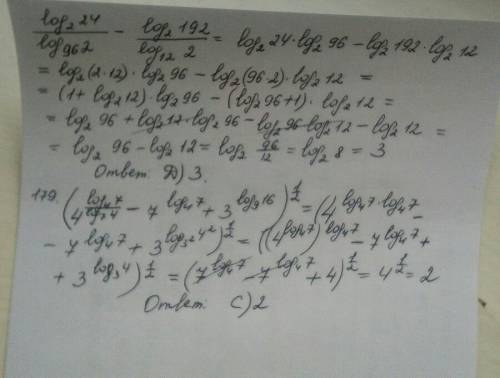 log₂24/log₉₆2 - log₂192/log₁₂2 = log₂24·log₂96 - log₂192·log₂12
= log₂(2·12)·log₂96 - log₂(96·2)·log₂12 =
= (1 + log₂12)·log₂96 - (log₂96+1)·log₂12 =
= log₂96 + log₂12·log₂96 - log₂96·log₂12 - log₂12 =
= log₂96 - log₂12 = log₂ 96/12 = log₂8 = 3
Ответ: D) 3.
179. (4^(log₄7/log₇4) - 7^(log₄7) + 3^(log₉16))^(1/2) = (4^(log₄7·log₄7) -
- 7^(log₄7) + 3^(log₃²4²))^(1/2) = ((4^(log₄7))^(log₄7) - 7^(log₄7) +
+ 3^(log₃4))^(1/2) = (7^(log₄7) - 7^(log₄7) + 4)^(1/2) = 4^(1/2) = 2
Ответ: C) 2